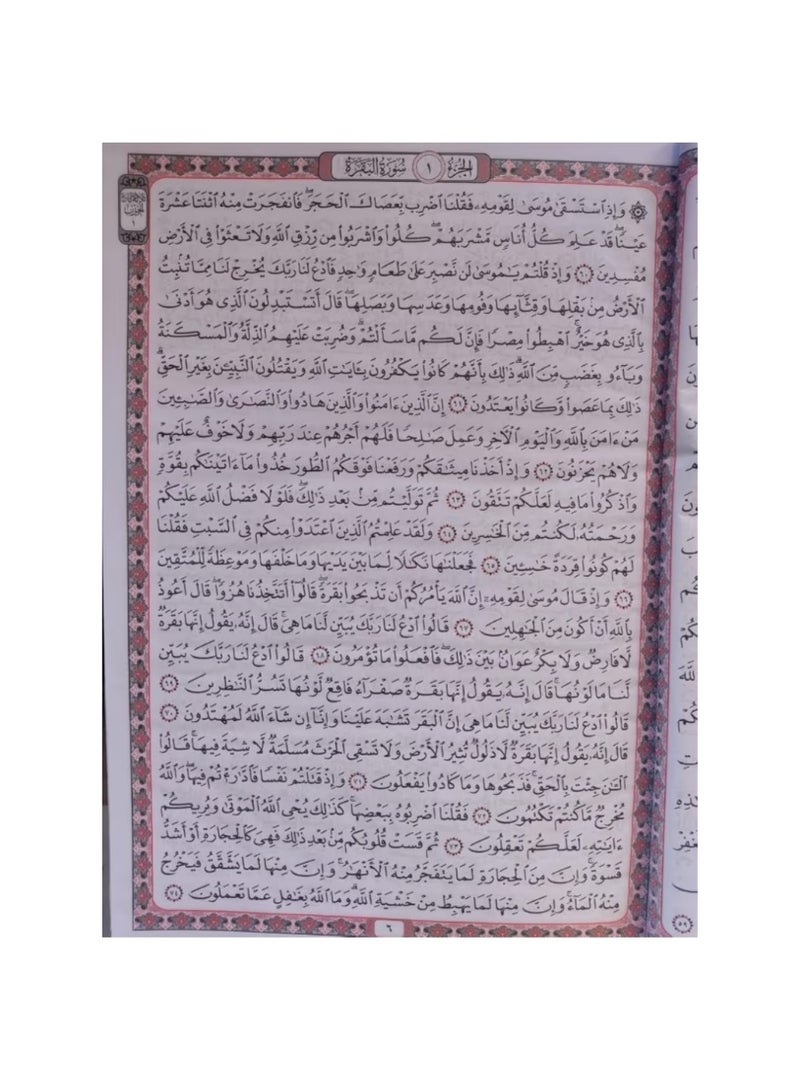 الجزء ١ سورة البقرة
۞ وَإِذِ ٱسۡتَسۡقَىٰ مُوسَىٰ لِقَوۡمِهِۦ فَقُلۡنَا ٱضۡرِب بِّعَصَاكَ ٱلۡحَجَرَۖ فَٱنفَجَرَتۡ مِنۡهُ ٱثۡنَتَا عَشۡرَةَ
عَيۡنٗاۖ قَدۡ عَلِمَ كُلُّ أُنَاسٖ مَّشۡرَبَهُمۡۖ كُلُواْ وَٱشۡرَبُواْ مِن رِّزۡقِ ٱللَّهِ وَلَا تَعۡثَوۡاْ فِي ٱلۡأَرۡضِ
مُفۡسِدِينَ ٦٠ وَإِذۡ قُلۡتُمۡ يَٰمُوسَىٰ لَن نَّصۡبِرَ عَلَىٰ طَعَامٖ وَٰحِدٖ فَٱدۡعُ لَنَا رَبَّكَ يُخۡرِجۡ لَنَا مِمَّا تُنۢبِتُ
ٱلۡأَرۡضُ مِنۢ بَقۡلِهَا وَقِثَّآئِهَا وَفُومِهَا وَعَدَسِهَا وَبَصَلِهَاۖ قَالَ أَتَسۡتَبۡدِلُونَ ٱلَّذِي هُوَ أَدۡنَىٰ
بِٱلَّذِي هُوَ خَيۡرٌۚ ٱهۡبِطُواْ مِصۡرٗا فَإِنَّ لَكُم مَّا سَأَلۡتُمۡۗ وَضُرِبَتۡ عَلَيۡهِمُ ٱلذِّلَّةُ وَٱلۡمَسۡكَنَةُ
وَبَآءُو بِغَضَبٖ مِّنَ ٱللَّهِۗ ذَٰلِكَ بِأَنَّهُمۡ كَانُواْ يَكۡفُرُونَ بِـَٔايَٰتِ ٱللَّهِ وَيَقۡتُلُونَ ٱلنَّبِيِّـۧنَ بِغَيۡرِ ٱلۡحَقِّۗ
ذَٰلِكَ بِمَا عَصَواْ وَّكَانُواْ يَعۡتَدُونَ ٦١ إِنَّ ٱلَّذِينَ ءَامَنُواْ وَٱلَّذِينَ هَادُواْ وَٱلنَّصَٰرَىٰ وَٱلصَّٰبِـِٔينَ
مَنۡ ءَامَنَ بِٱللَّهِ وَٱلۡيَوۡمِ ٱلۡأٓخِرِ وَعَمِلَ صَٰلِحٗا فَلَهُمۡ أَجۡرُهُمۡ عِندَ رَبِّهِمۡ وَلَا خَوۡفٌ عَلَيۡهِمۡ
وَلَا هُمۡ يَحۡزَنُونَ ٦٢ وَإِذۡ أَخَذۡنَا مِيثَٰقَكُمۡ وَرَفَعۡنَا فَوۡقَكُمُ ٱلطُّورَ خُذُواْ مَآ ءَاتَيۡنَٰكُم بِقُوَّةٖ
وَٱذۡكُرُواْ مَا فِيهِ لَعَلَّكُمۡ تَتَّقُونَ ٦٣ ثُمَّ تَوَلَّيۡتُم مِّنۢ بَعۡدِ ذَٰلِكَۖ فَلَوۡلَا فَضۡلُ ٱللَّهِ عَلَيۡكُمۡ
وَرَحۡمَتُهُۥ لَكُنتُم مِّنَ ٱلۡخَٰسِرِينَ ٦٤ وَلَقَدۡ عَلِمۡتُمُ ٱلَّذِينَ ٱعۡتَدَوۡاْ مِنكُمۡ فِي ٱلسَّبۡتِ فَقُلۡنَا
لَهُمۡ كُونُواْ قِرَدَةً خَٰسِـِٔينَ ٦٥ فَجَعَلۡنَٰهَا نَكَٰلٗا لِّمَا بَيۡنَ يَدَيۡهَا وَمَا خَلۡفَهَا وَمَوۡعِظَةٗ لِّلۡمُتَّقِينَ
٦٦ وَإِذۡ قَالَ مُوسَىٰ لِقَوۡمِهِۦٓ إِنَّ ٱللَّهَ يَأۡمُرُكُمۡ أَن تَذۡبَحُواْ بَقَرَةٗۖ قَالُوٓاْ أَتَتَّخِذُنَا هُزُوٗاۖ قَالَ أَعُوذُ
بِٱللَّهِ أَنۡ أَكُونَ مِنَ ٱلۡجَٰهِلِينَ ٦٧ قَالُواْ ٱدۡعُ لَنَا رَبَّكَ يُبَيِّن لَّنَا مَا هِيَۚ قَالَ إِنَّهُۥ يَقُولُ إِنَّهَا بَقَرَةٞ
لَّا فَارِضٞ وَلَا بِكۡرٌ عَوَانُۢ بَيۡنَ ذَٰلِكَۖ فَٱفۡعَلُواْ مَا تُؤۡمَرُونَ ٦٨ قَالُواْ ٱدۡعُ لَنَا رَبَّكَ يُبَيِّن
لَّنَا مَا لَوۡنُهَاۚ قَالَ إِنَّهُۥ يَقُولُ إِنَّهَا بَقَرَةٞ صَفۡرَآءُ فَاقِعٞ لَّوۡنُهَا تَسُرُّ ٱلنَّٰظِرِينَ ٦٩
قَالُواْ ٱدۡعُ لَنَا رَبَّكَ يُبَيِّن لَّنَا مَا هِيَ إِنَّ ٱلۡبَقَرَ تَشَٰبَهَ عَلَيۡنَا وَإِنَّآ إِن شَآءَ ٱللَّهُ لَمُهۡتَدُونَ ٧٠
قَالَ إِنَّهُۥ يَقُولُ إِنَّهَا بَقَرَةٞ لَّا ذَلُولٞ تُثِيرُ ٱلۡأَرۡضَ وَلَا تَسۡقِي ٱلۡحَرۡثَ مُسَلَّمَةٞ لَّا شِيَةَ فِيهَاۚ قَالُواْ
ٱلۡـَٰٔنَ جِئۡتَ بِٱلۡحَقِّۚ فَذَبَحُوهَا وَمَا كَادُواْ يَفۡعَلُونَ ٧١ وَإِذۡ قَتَلۡتُمۡ نَفۡسٗا فَٱدَّٰرَٰٔتُمۡ فِيهَاۖ وَٱللَّهُ
مُخۡرِجٞ مَّا كُنتُمۡ تَكۡتُمُونَ ٧٢ فَقُلۡنَا ٱضۡرِبُوهُ بِبَعۡضِهَاۚ كَذَٰلِكَ يُحۡيِ ٱللَّهُ ٱلۡمَوۡتَىٰ وَيُرِيكُمۡ
ءَايَٰتِهِۦ لَعَلَّكُمۡ تَعۡقِلُونَ ٧٣ ثُمَّ قَسَتۡ قُلُوبُكُم مِّنۢ بَعۡدِ ذَٰلِكَ فَهِيَ كَٱلۡحِجَارَةِ أَوۡ أَشَدُّ
قَسۡوَةٗۚ وَإِنَّ مِنَ ٱلۡحِجَارَةِ لَمَا يَتَفَجَّرُ مِنۡهُ ٱلۡأَنۡهَٰرُۚ وَإِنَّ مِنۡهَا لَمَا يَشَّقَّقُ فَيَخۡرُجُ
مِنۡهُ ٱلۡمَآءُۚ وَإِنَّ مِنۡهَا لَمَا يَهۡبِطُ مِنۡ خَشۡيَةِ ٱللَّهِۗ وَمَا ٱللَّهُ بِغَٰفِلٍ عَمَّا تَعۡمَلُونَ ٧٤
٦